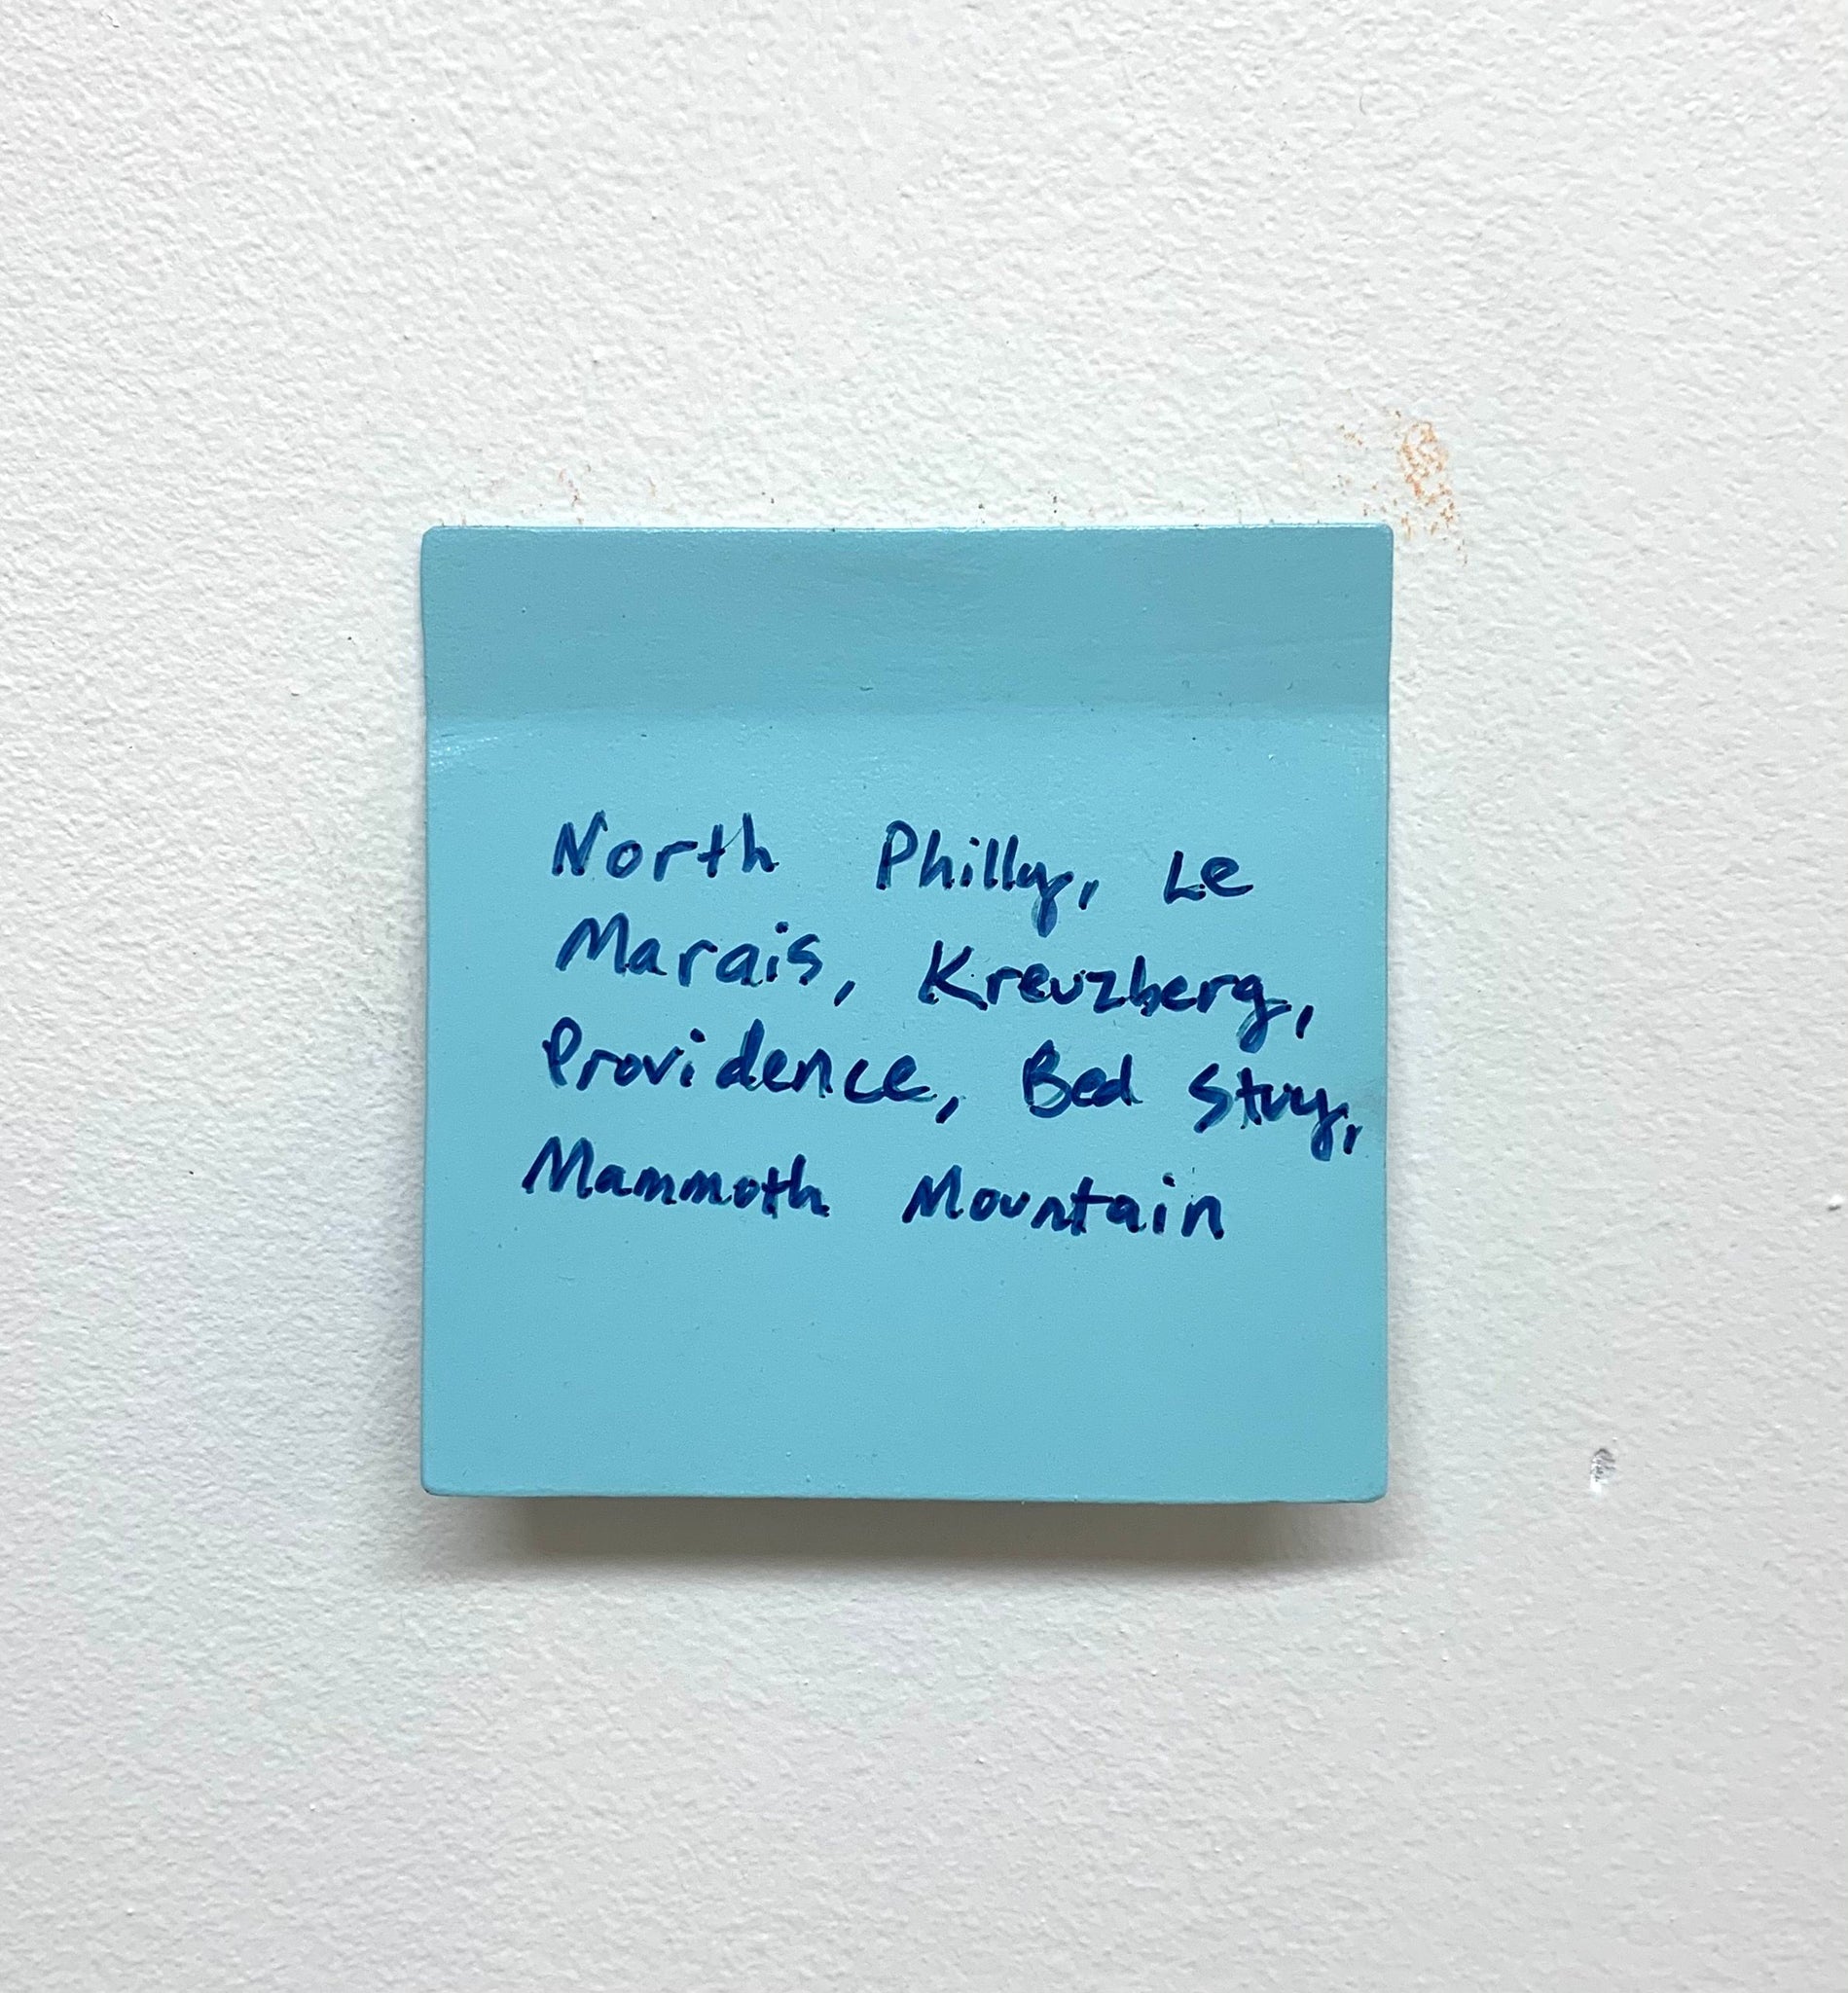 North Philly, Le
Marais, Kreuzberg,
Providence, Bed Stuy,
Mammoth Mountain